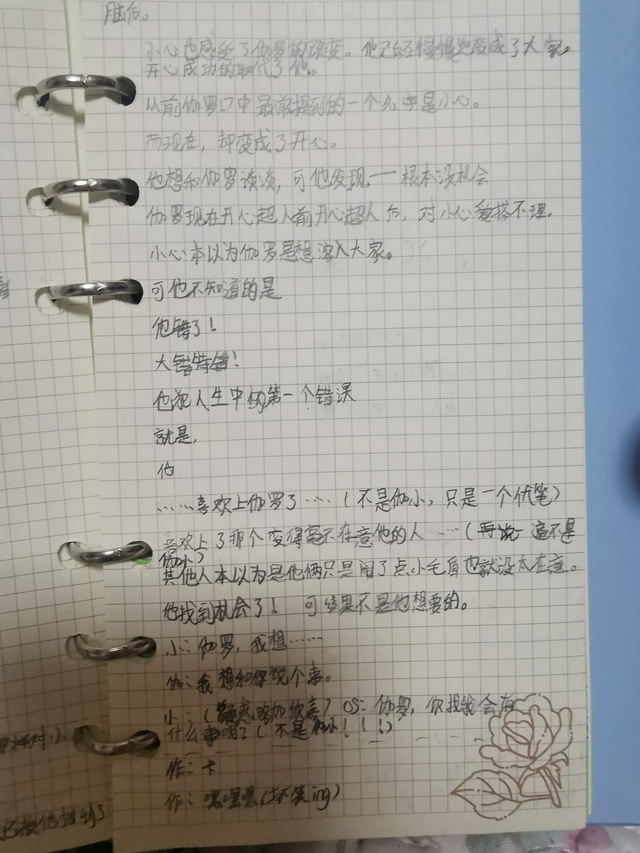 脑后。
小心也感受了伽罗的改变。他已经慢慢地变成了大家。
开心成功的取代了他。
从前伽罗口中最常提到的一个名字是小心。
而现在，却变成了开心。
他想和伽罗谈谈，可他发现——根本没机会
伽罗现在开心超人前开心超人后，对小心爱搭不理。
小心本以为伽罗是想深入大家。
可他不知道的是
他错了！
大错特错！
他犯人生中的第一个错误
就是，
他
……喜欢上伽罗了……（不是伽小，只是一个伏笔）
喜欢上了那个变得毫不在意他的人……（再说一遍不是
伽小）
其他人本以为是他俩只是闹了点小毛盾也就没太在意。
他找到机会了！可结果不是他想要的。
小：伽罗，我想……
伽：我想和你说个事。
小：（疑惑略加欣喜）OS：伽罗，你找我会有
什么事呢？（不是伽小！！！）
作：卡
作：嘿嘿嘿（坏笑ing）